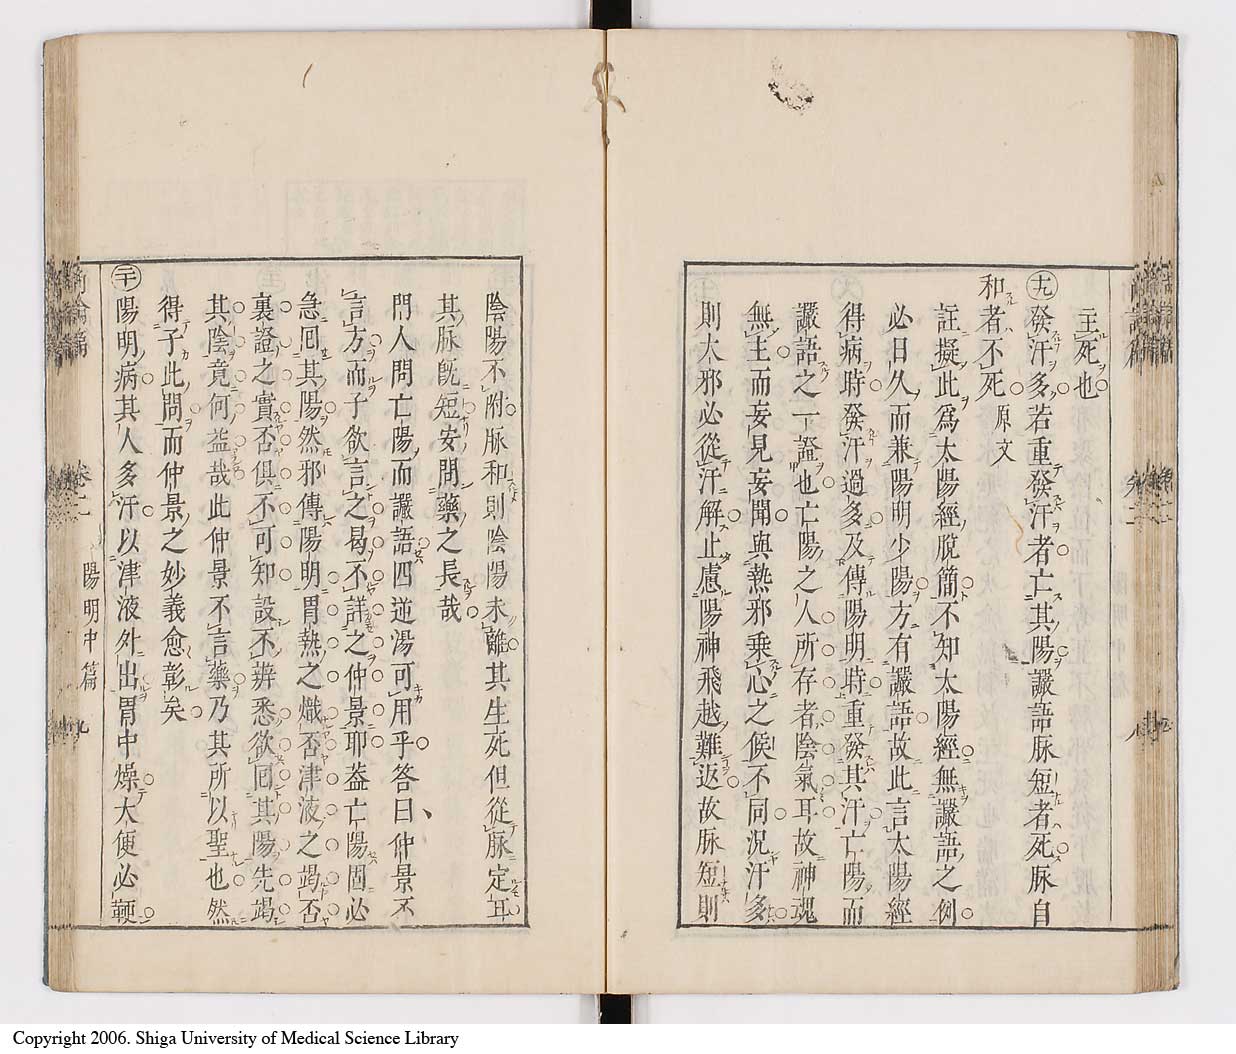 主死也
㊉九發汗多若重發汗者亡其陽讝語脉短者死脉自
和者不死 原文
註擬此爲太陽經脫簡不知太陽經無讝語之例
必日久而兼陽明少陽方有讝語故此言太陽經
得病時發汗過多及傳陽明時重發其汗亡陽而
讝語之一證也亡陽之人所存者陰氣耳故神魂
無主而妄見妄聞與熱邪乗心之候不同況汗多
則大邪必從汗解止慮陽神飛越難返故脉短則
陰陽不附脉和則陰陽未離其生死但從脉定耳
其脉旣短安問藥之長哉
門人問亡陽而讝語四逆湯可用乎答曰仲景不
言方而子欲言之曷不詳之仲景耶葢亡陽固必
急囘其陽然邪傳陽明胃熱之熾否津液之竭否
裏證之實否俱不可知設不辨悉欲囘其陽先竭
其陰竟何益哉此仲景不言藥乃其所以聖也然
得子此問而仲景之妙義愈彰矣
㊁十陽明病其人多汗以津液外出胃中燥大便必鞕
陽明中篇 九
Copyright 2006. Shiga University of Medical Science Library